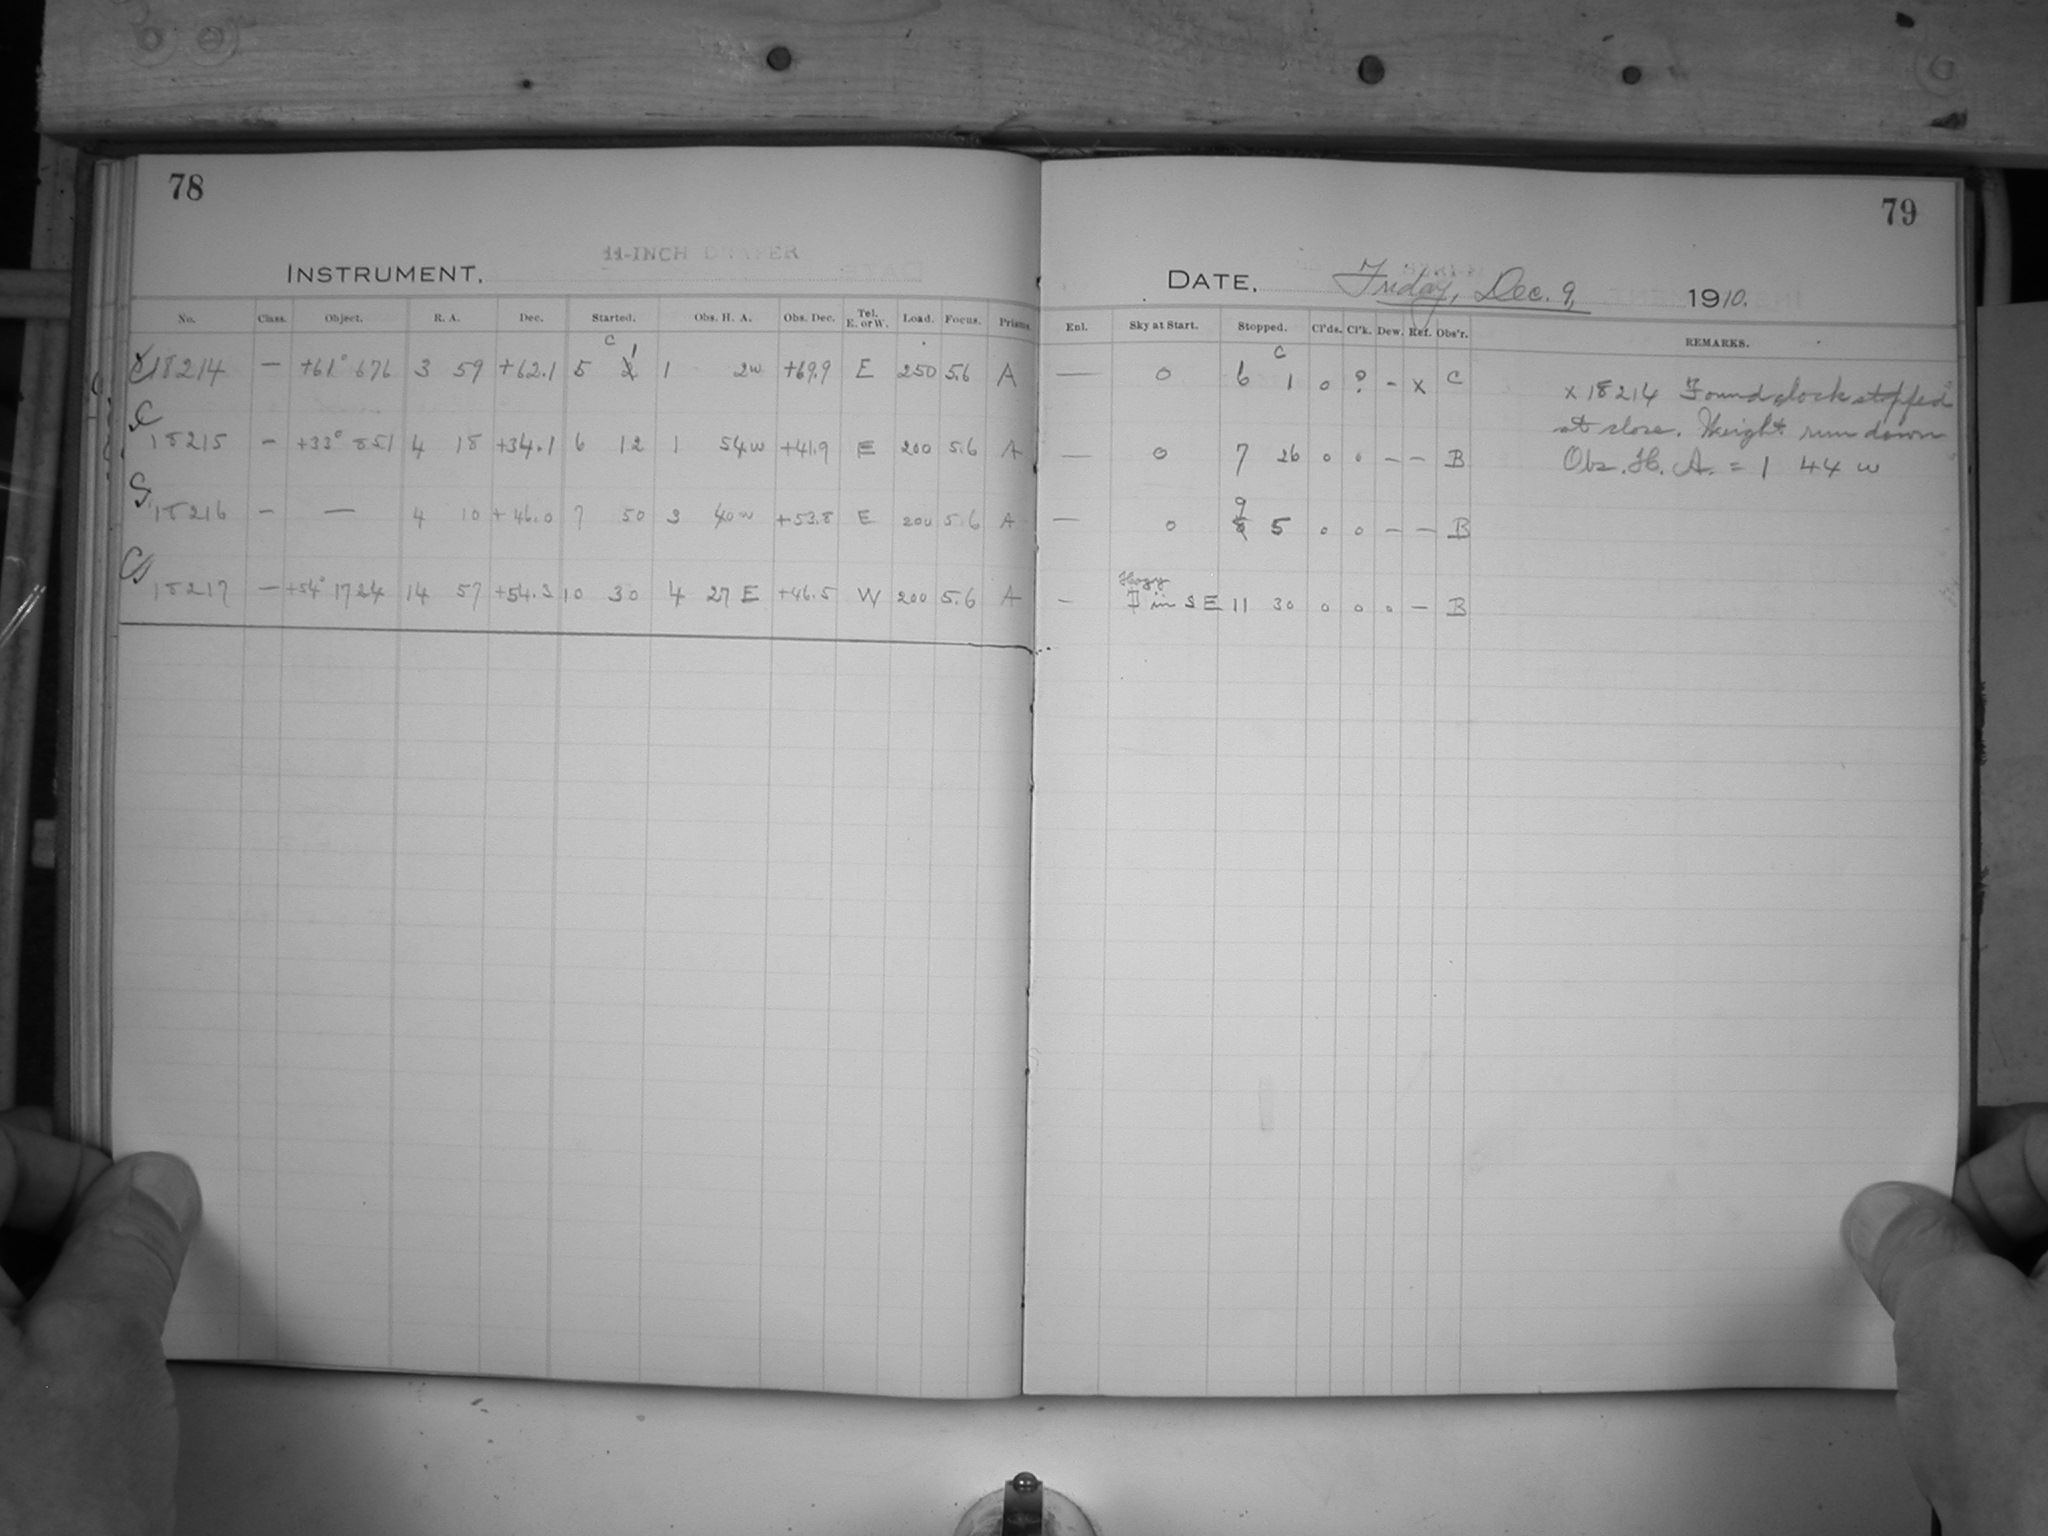 78
11-INCH DRAPER
INSTRUMENT.
No. Class. Object. R. A. Dec. Started. Obs. H. A. Obs. Dec. Tel. E. or W. Load. Focus. Prisms.
C 1
18214 — +61° 676 3 59 +62.1 5 1 2w +69.9 E 250 5.6 A
C
18215 — +33° 851 4 18 +34.1 6 12 1 54w +41.9 E 200 5.6 A
18216 — — 4 10 +46.0 7 50 3 40w +53.8 E 200 5.6 A
18217 — +54° 1724 14 57 +54.3 10 30 4 27 E +46.5 W 200 5.6 A
79
DATE. Friday, Dec. 9, 1910.
Enl. Sky at Start. Stopped. Cl'ds. Cl'k. Dew. Ref. Obs'r. REMARKS.
C
— 0 6 1 0 ? - x C
— 0 7 26 0 0 — — B
9
— 0 5 0 0 — — B
Hazy
— in SE 11 30 0 0 0 — B
x 18214 Found clock stopped
at close. Weight run down
Obs. H. A. = 1 44 w